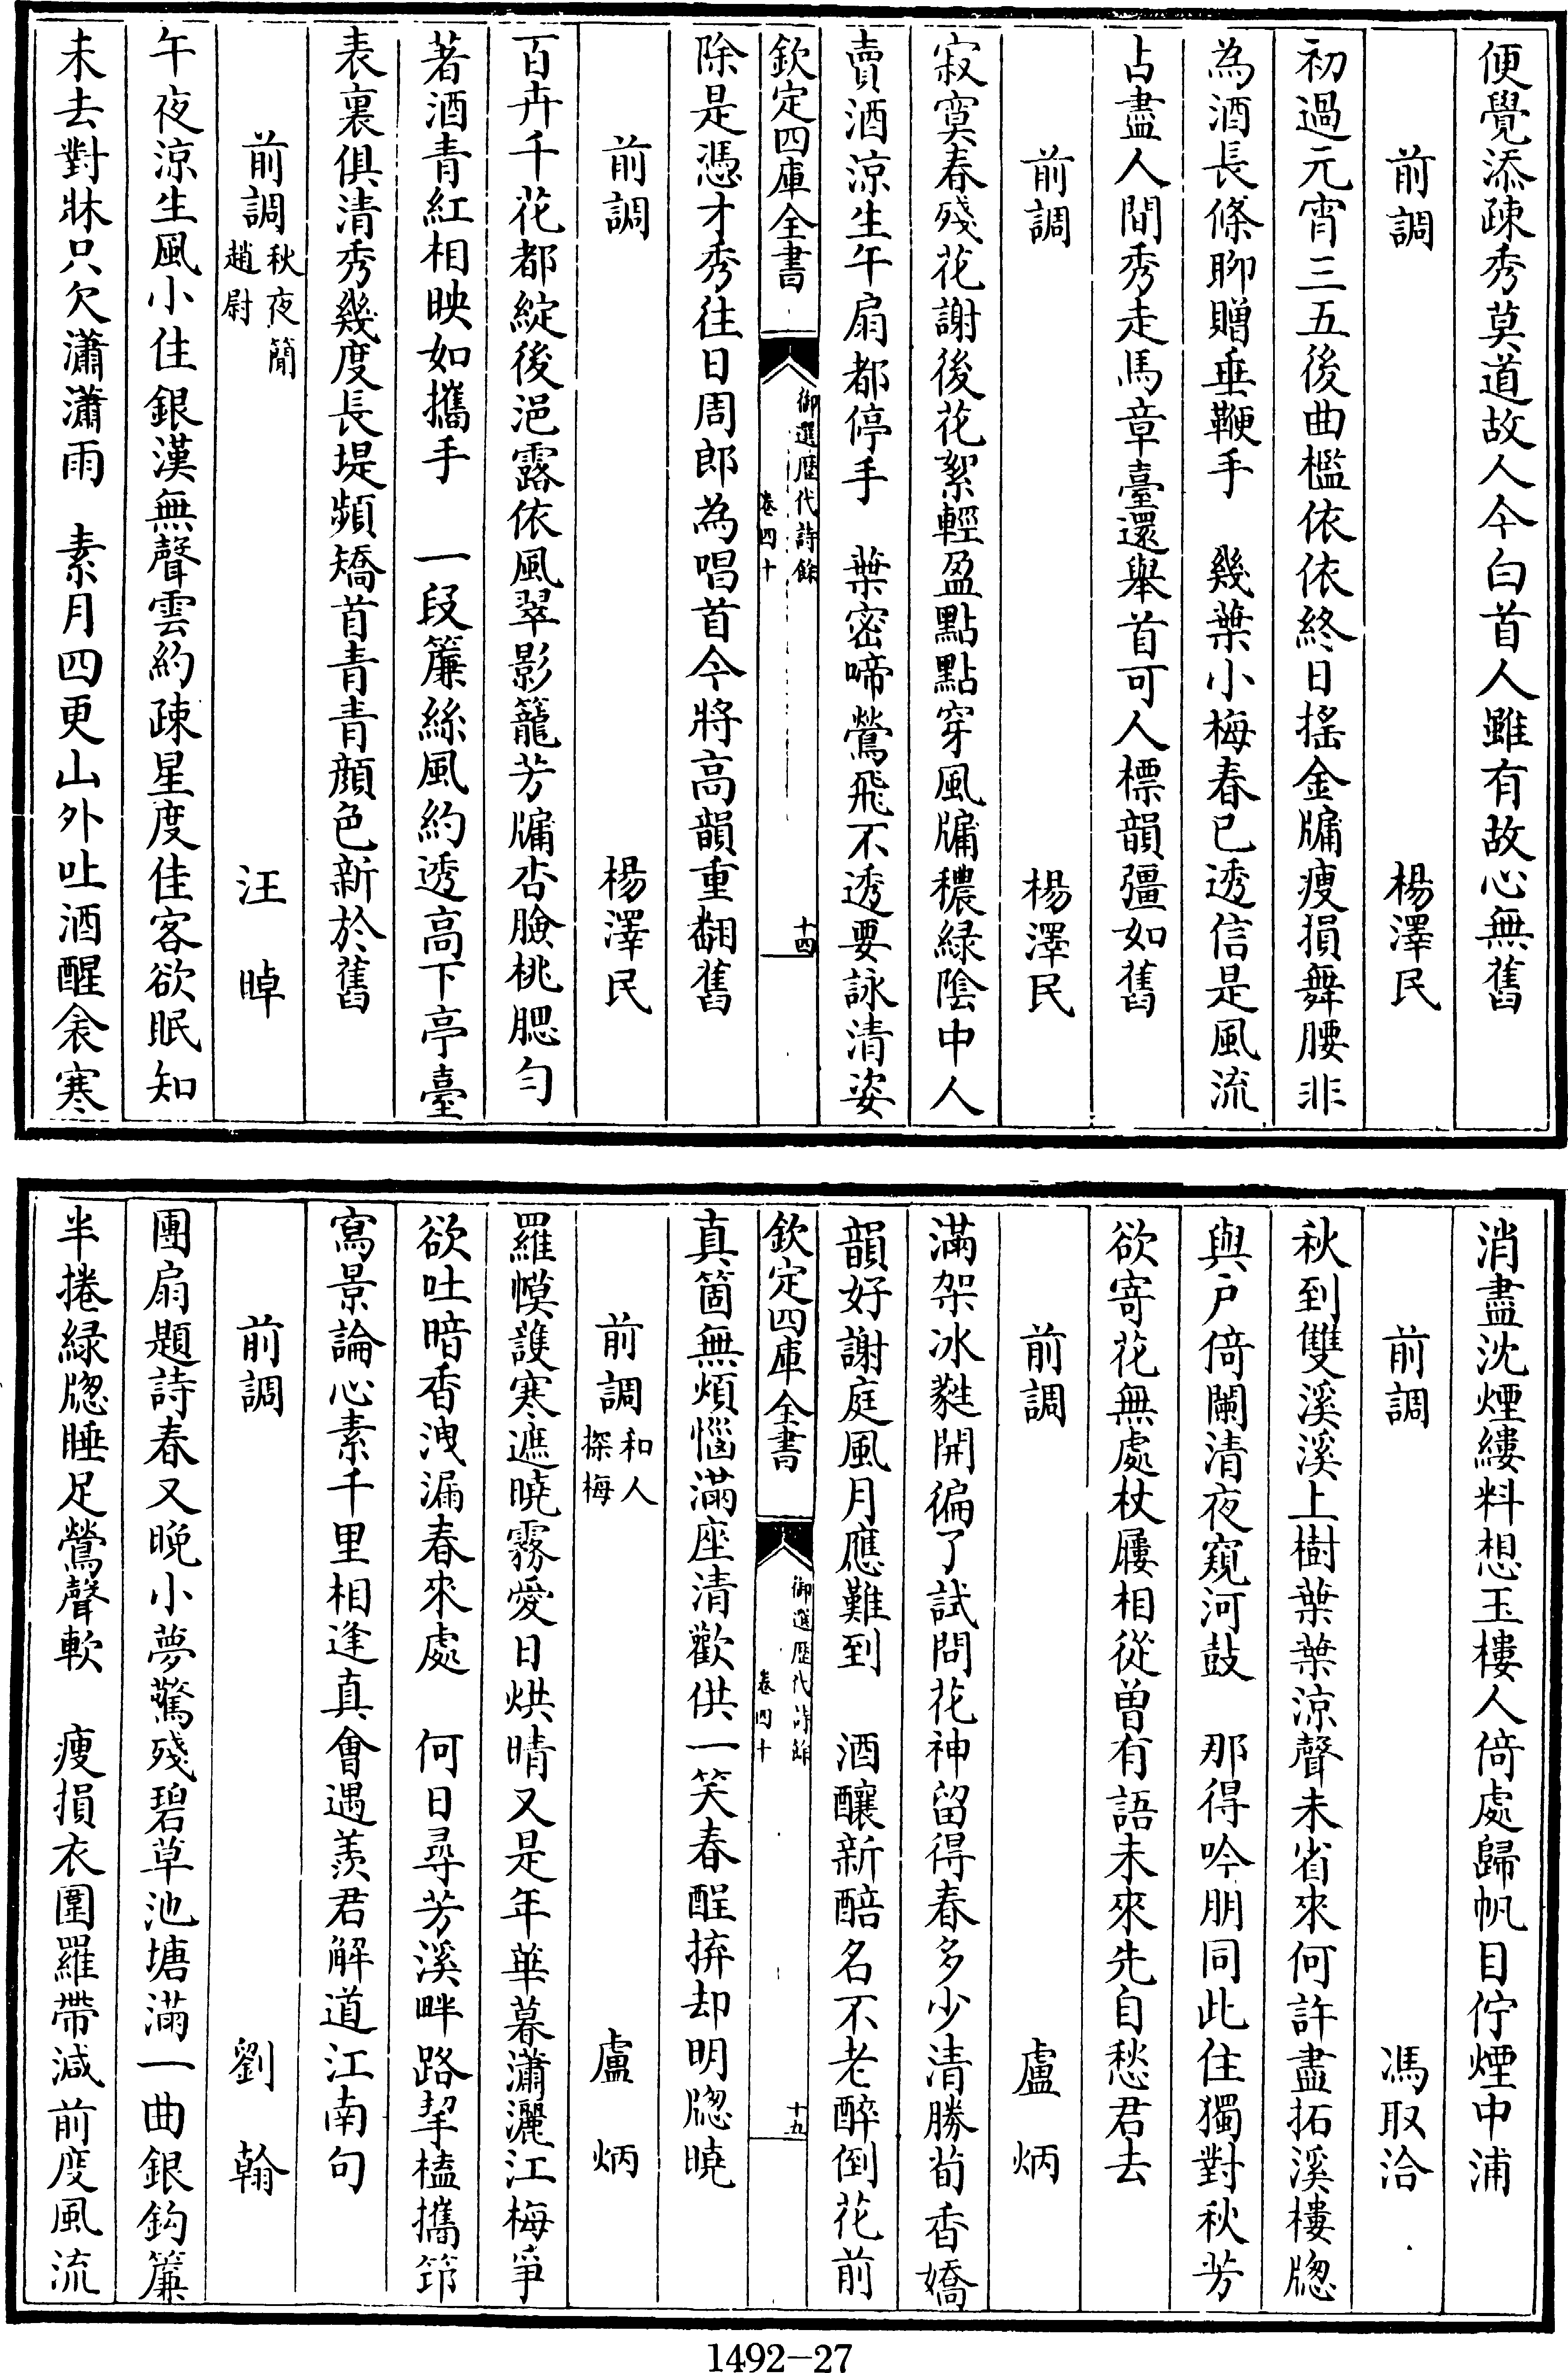 便覺添疎秀莫道故人今白首人雖有故心無舊
前調 楊澤民
初過元宵三五後曲檻依依終日搖金牗瘦損舞腰非
為酒長條聊贈垂鞭手 幾葉小梅春已透信是風流
占盡人間秀走馬章臺還舉首可人標韻彊如舊
前調 楊澤民
寂寞春殘花謝後花絮輕盈點點穿風牗穠綠陰中人
賣酒涼生午扇都停手 葉密啼鶯飛不透要詠清姿
欽定四庫全書
御選歴代詩餘
卷四十
十四
除是憑才秀往日周郎為唱首今將高韻重翻舊
前調 楊澤民
百卉千花都綻後浥露依風翠影籠芳牗杏臉桃腮勻
著酒青紅相映如攜手 一段簾絲風約透高下亭臺
表裏俱清秀幾度長堤頻矯首青青顔色新於舊
前調 秋夜簡趙尉 汪晫
午夜涼生風小住銀漢無聲雲約疎星度佳客欲眠知
未去對牀只欠瀟瀟雨 素月四更山外吐酒醒衾寒
消盡沈煙縷料想玉樓人倚處歸帆目佇煙中浦
前調 馮取洽
秋到雙溪溪上樹葉葉涼聲未省來何許盡拓溪樓牎
與户倚闌清夜窺河鼓 那得吟朋同此住獨對秋芳
欲寄花無處杖屨相從曽有語未來先自愁君去
前調 盧炳
滿架冰蕤開徧了試問花神留得春多少清勝荀香嬌
韻好謝庭風月應難到 酒釀新醅名不老醉倒花前
欽定四庫全書
御選歴代詩餘
卷四十
十九
真箇無煩惱滿座清歡供一笑春酲拚却明牎曉
前調 和人探梅 盧炳
羅幙護寒遮曉霧愛日烘晴又是年華暮瀟灑江梅爭
欲吐暗香洩漏春來處 何日尋芳溪畔路挈榼攜筇
寫景論心素千里相逢真會遇羨君解道江南句
前調 劉翰
團扇題詩春又晚小夢驚殘碧草池塘滿一曲銀鉤簾
半捲緑牎睡足鶯聲軟 瘦損衣圍羅帶減前度風流
1492-27